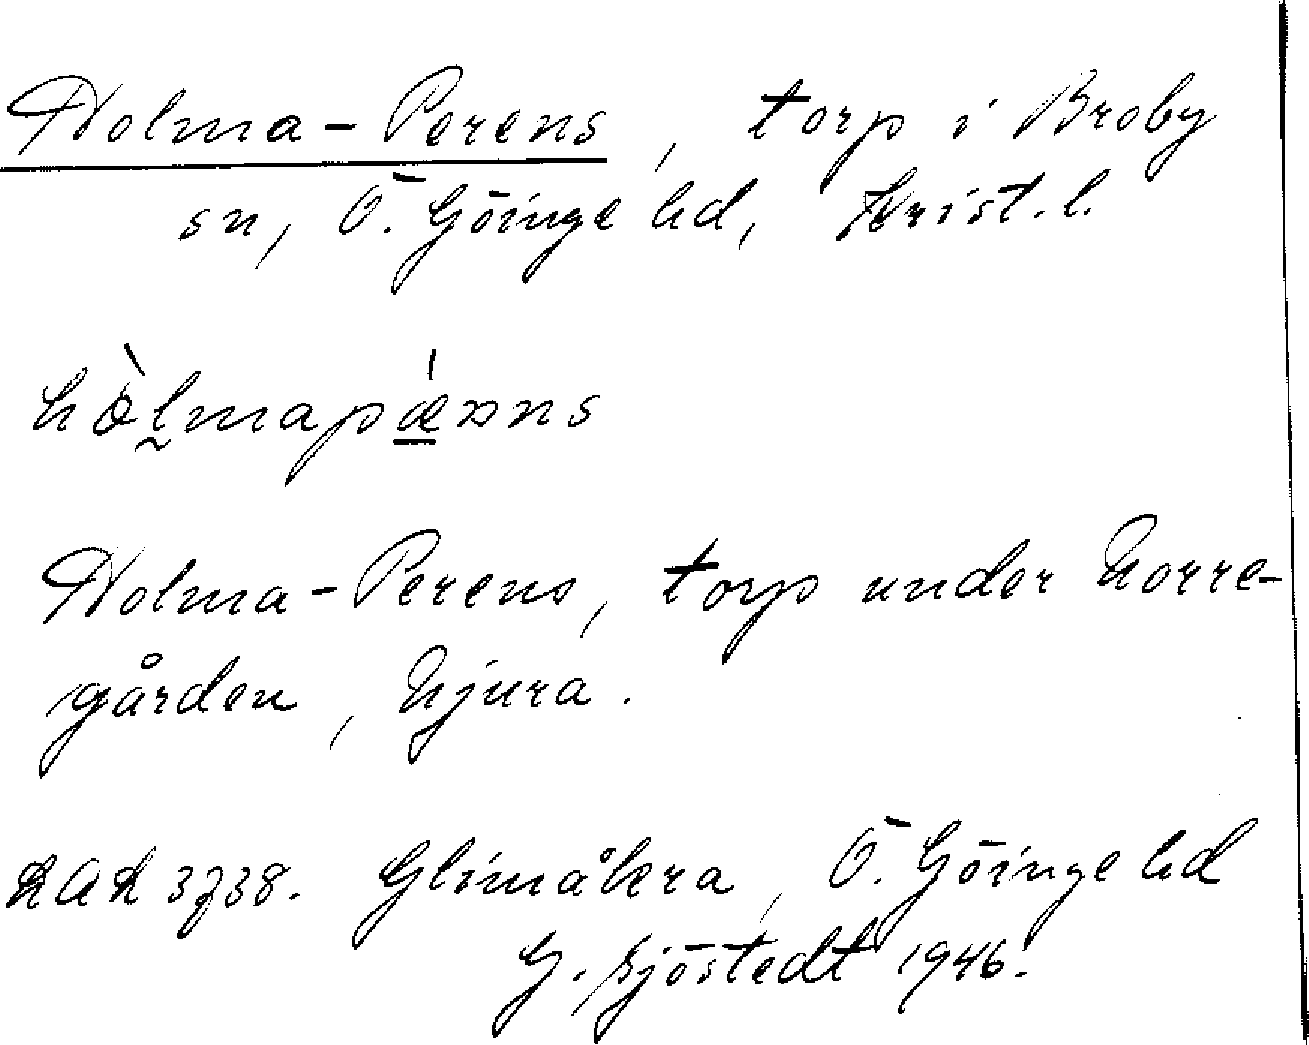 Holma-Perens, torp i Broby
sn, Ö. Göinge hd, Krist. l.
Holma-Perens, torp under Norre-
gården, Njura.
3738. Glimåkra, Ö. Göinge hd
G. Sjöstedt 1946.